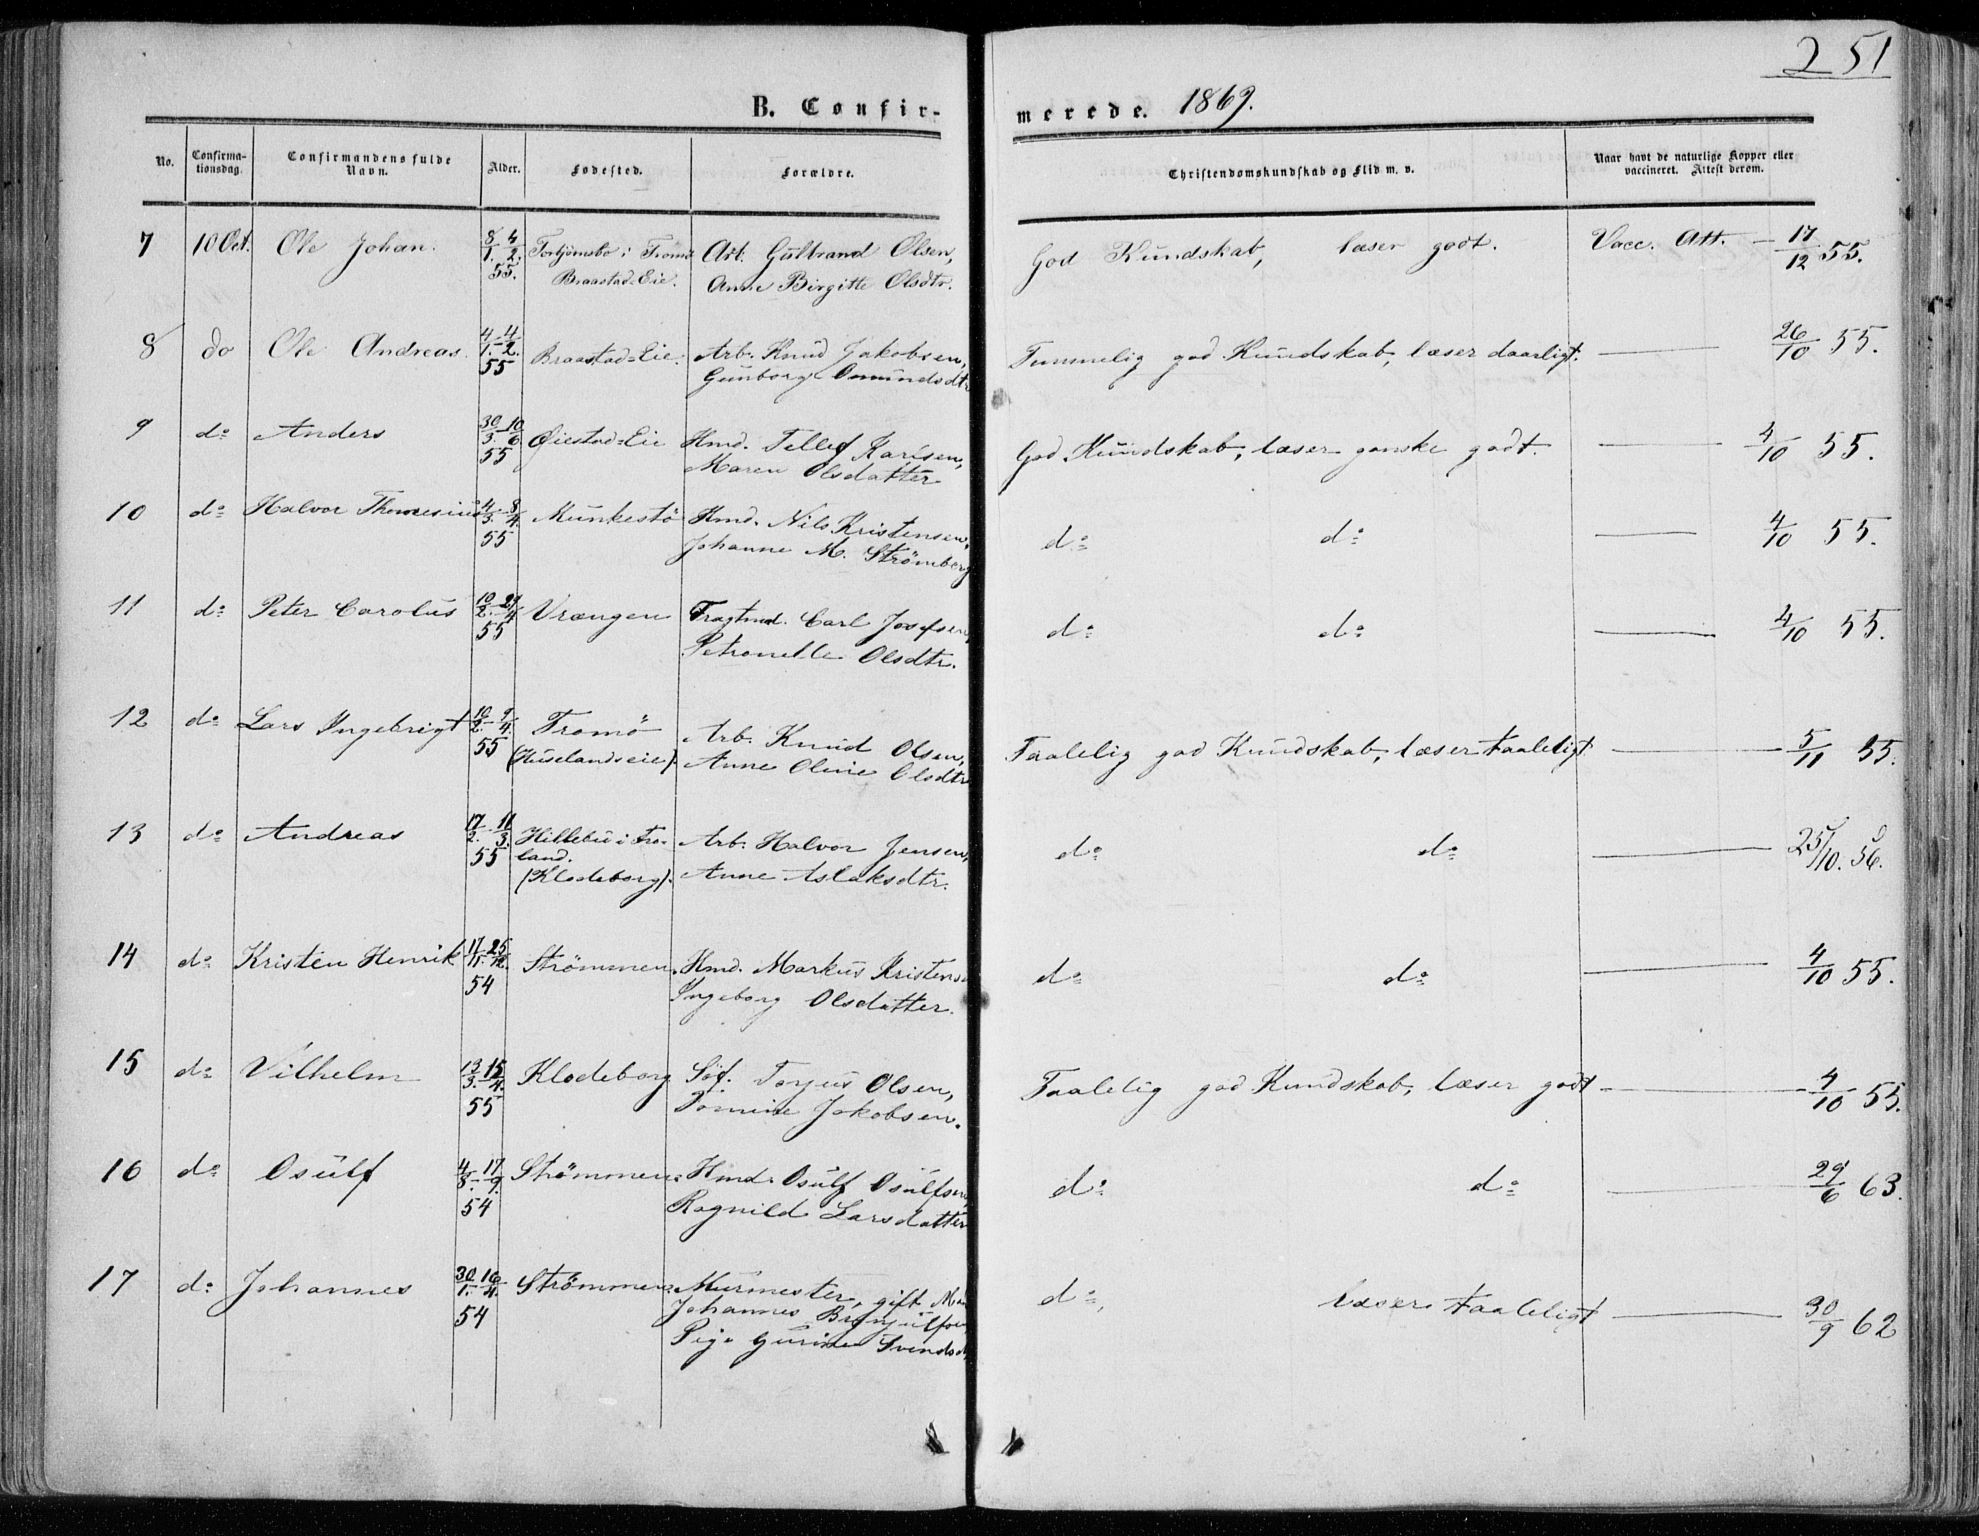 251
B. Confir-
merede. 1869.
No. Confirma-tionsdag. Confirmandens fulde Navn. Alder. Fødested. Forældre. Christendomskundskab og Flid m. v. Naar havt de naturlige Kopper eller vaccineret. Attest derom.
7 10 Oct. Ole Johan. 8/1. 4/2. 55. Torbjörnsbo i Tromö Arb. Gulbrand Olsen, God Kundskab, læser godt. Vacc. Att. — 17/12 55.
Braastad=Eie. Anne Birgitte Olsdtr.
8 do Ole Andreas. 4/1.-4/2. 55 Braastad=Eie. Arb. Knud Jakobsen, Temmelig god Kundskab, læser daarligt. — 26/10 55.
Gunborg Omundsdtr
9 do Anders 30/3.-10/6 55 Øiestad=Eie Hmd. Tellef Karlsen, God Kundskab, læser ganske godt. — 4/10 55.
Maren Olsdatter
10 do Halvor Thomesius 4/3.-8/4. 55 Munkestö Hmd. Nils Kristensen, do do — 4/10 55.
Johanne M. Strömberg
11 do Peter Carolus 10/2.-27/4 55 Vrængen Fragtmd. Carl Josefsen, do do — 4/10 55.
Petronelle Olsdtr.
12 do Lars Ingebrigt 10/2.-9/4. 55 Tromö Arb. Knud Olsen, Taalelig god Kundskab, læser taaleligt — 5/11 55.
(Huselandseie). Anne Oline Olsdtr
13 do Andreas 17/2.-11/3. 55 Hillebu i Fro- Arb. Halvor Jensen, do do — 25/10. 56.
land.
(Klodeborg). Anne Aslaksdtr.
14 do Kristen Henrik 17/11.-25/12. 54 Strömmen. Hmd. Markus Kristens do do — 4/10 55.
Ingeborg Olsdatter.
15 do Vilhelm 13/3.-15/4. 55 Klodeborg Söf. Torjus Olsen, Taalelig god Kundskab, læser godt — 4/10 55.
Tomine Jakobsen.
16 do Osulf 4/8.-17/9. 54 Strömmen. Hmd. Osulf Osulfsen, do do — 29/6 63.
Ragnild Larsdatter
17 do Johannes 30/1.-16/4. 54 Strömmen. Murmester, gift Man do, læser taaleligt — 30/9 62
Johannes
Pige Gurine Svendsd